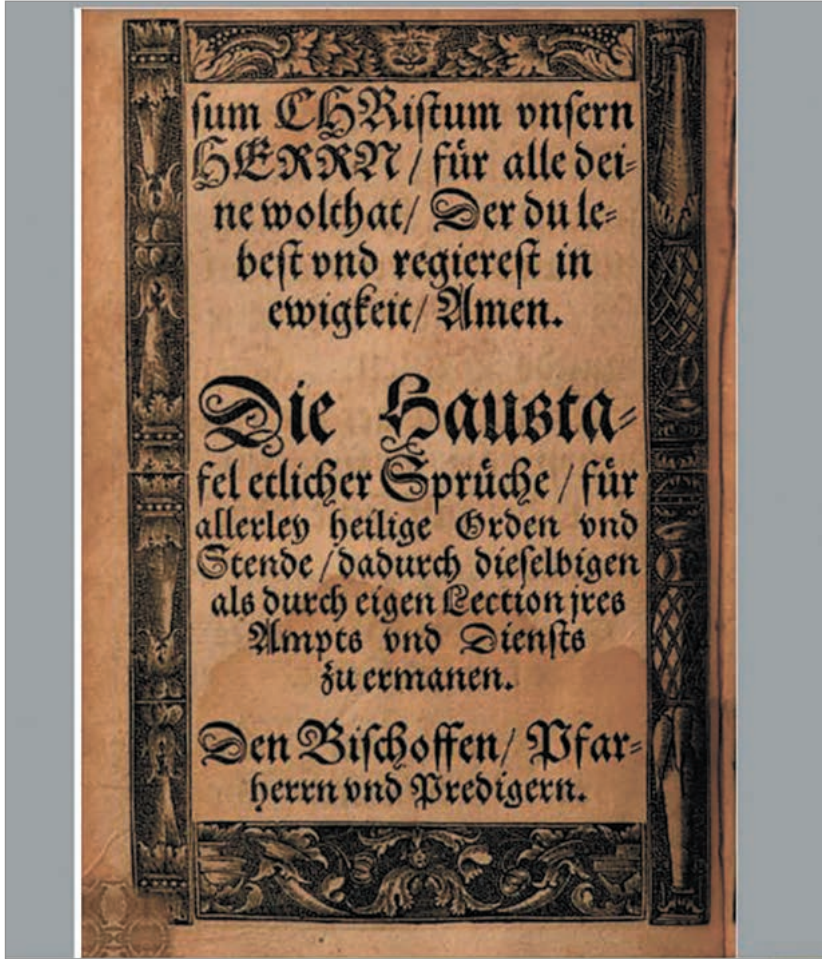 ſum CHRiſtum vnſern
HERRN / für alle dei⸗
ne wolthat / Der du le⸗
beſt vnd regiereſt in
ewigkeit / Amen.
Die Hausta⸗
fel etlicher Sprüche / für
allerley heilige Orden vnd
Stende / dadurch dieſelbigen
als durch eigen Lection jres
Ampts vnd Dienſts
zu ermanen.
Den Biſchoffen / Pfar⸗
herrn vnd Predigern.